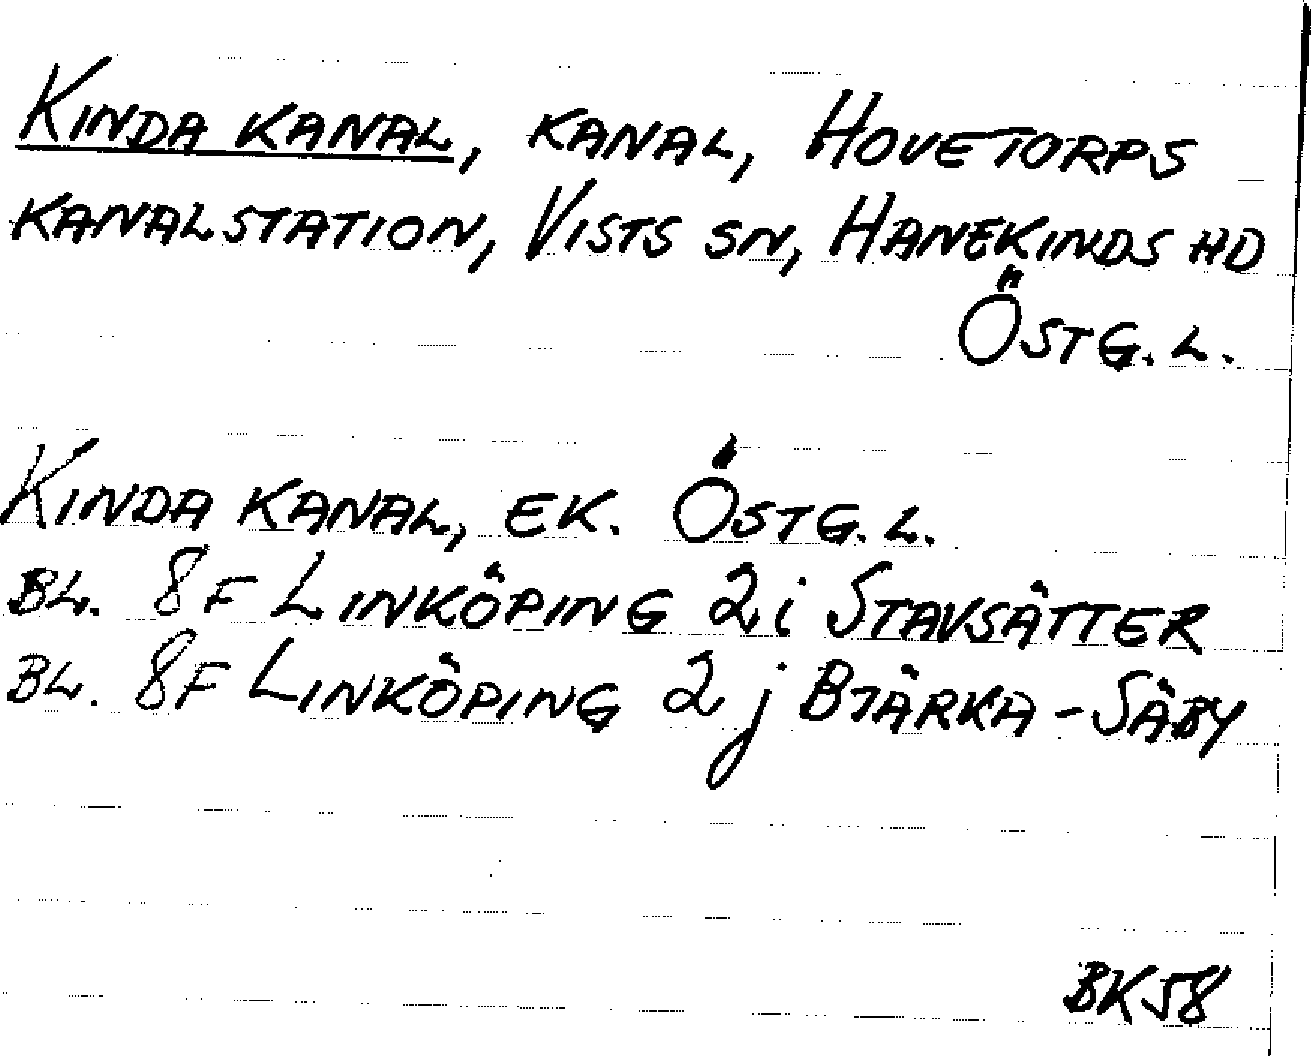 KINDA KANAL, KANAL, HOVETORPS
KANALSTATION, VISTS SN, HANEKINDS HD
ÖSTG. L.
KINDA KANAL, EK. ÖSTG. L.
BL. 8F LINKÖPING 2i STAVSÄTTER
BL. 8F LINKÖPING 2j BJÄRKA-SÄBY
BK58